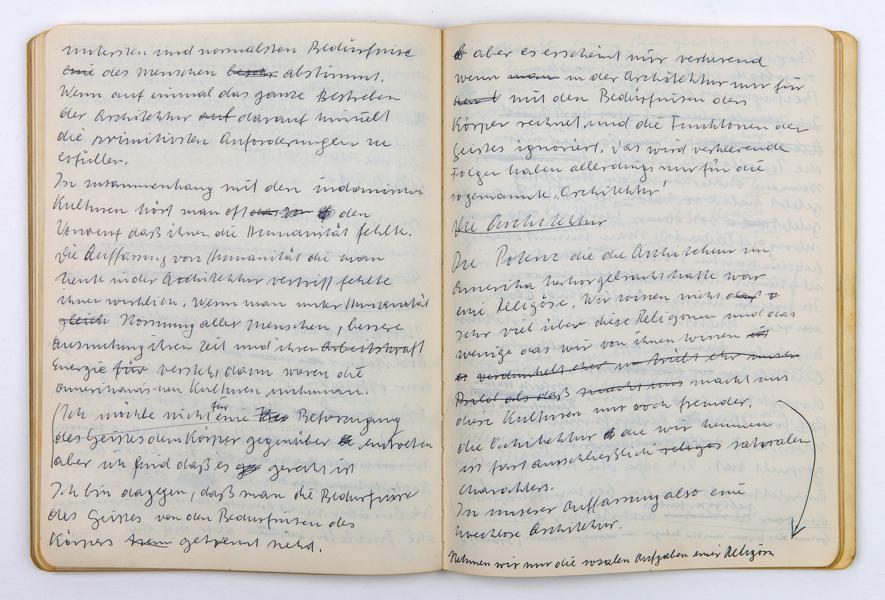 untersten und normalsten Bedürfnisse
eine des Menschen besser abstimmt.
Wenn auf einmal das ganze Bestreben
der Architektur auf darauf hinzielt
die primitivsten Anforderungen zu
erfüllen.
In zusammenhang mit den indianischen
Kulturen hört man oft das den
Vorwurf daß ihnen die Humanität fehlte.
Die Auffassung von Humanität die man
heute in der Architektur vertritt fehlte
ihnen wirklich. Wenn man unter Humanität
gleich Normung aller Menschen, bessere
Ausnutzung ihrer Zeit und ihrer Arbeitskraft
Energie für versteht, dann waren die
amerikanischen Kulturen inhuman.
(Ich möchte nicht für eine Bevorzugung
des Geistes dem Körper gegenüber eintreten
aber ich find daß es gerecht ist
Ich bin dagegen, daß man die Bedürfnisse
des Geistes von den Bedürfnissen des
Körpers getrennt sieht.
aber es erscheint mir verheerend
wenn man in der Architektur nur für
mit den Bedürfnissen des
Körper rechnet und die Funktionen des
Geistes ignoriert. Das wird verheerende
Folgen haben allerdings nur für die
sogenannte "Architektur"
Die Architektur
Die Potenz die die Architektur in
Amerika hervorgebracht hatte war
eine Religiöse. Wir wissen nicht daß
sehr viel über diese Religionen und das
wenige das wir von ihnen wissen ist
es verdunkelt eher
Bild als daß macht uns macht uns
diese Kulturen nur noch fremder.
die Architektur die wir kennen
ist fast ausschließlich religiös sakralen
Charakters.
In unserer Auffassung also eine
zwecklose Architektur.
Nehmen wir nur die sozialen Aufgaben einer Religion